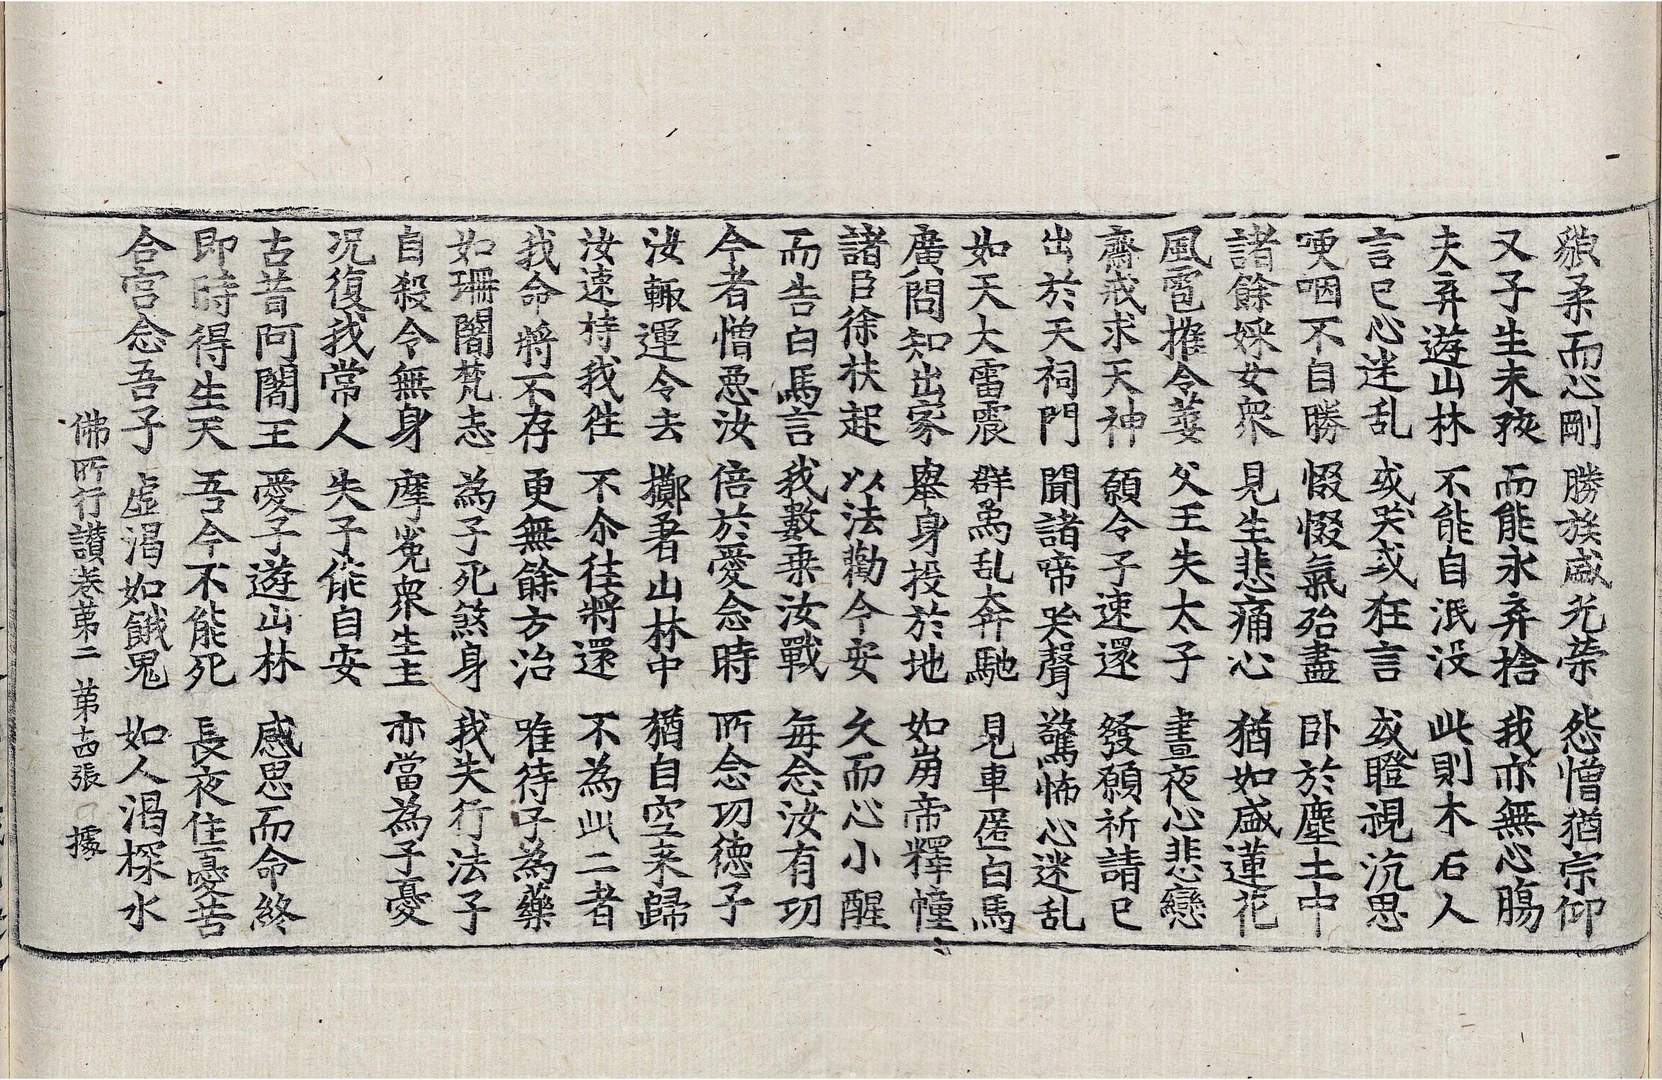 貌柔而心剛 勝族盛光榮 怨憎猶宗仰
又子生未孩 而能永弃捨 我亦無心膓
夫弃遊山林 不能自泯没 此則木石人
言已心迷乱 或哭或狂言 或瞪視沉思
哽咽不自勝 惙惙氣殆盡 卧於塵土中
諸餘婇女衆 見生悲痛心 猶如盛蓮花
風雹摧令萎 父王失太子 晝夜心悲戀
齋戒求天神 願令子速還 發願祈請已
出於天祠門 聞諸啼哭聲 驚怖心迷乱
如天大雷震 群烏乱奔馳 見車匿白馬
廣問知出家 舉身投於地 如崩帝釋幢
諸臣徐扶起 以法勸令安 久而心小醒
而告白馬言 我數乗汝戰 每念汝有功
今者憎惡汝 倍於愛念時 所念功德子
汝輙運令去 擲著山林中 猶自空来歸
汝速持我徃 不尒往將還 不為此二者
我命將不存 更無餘方治 唯待子為藥
如珊闍梵志 為子死煞身 我失行法子
自殺令無身 摩㝹衆生主 亦當為子憂
况復我常人 失子能自安
古昔阿闍王 愛子遊山林 感思而命終
即時得生天 吾今不能死 長夜住憂苦
合宫念吾子 虚渴如餓鬼 如人渴探水
佛所行讃卷第二 第十四張 據